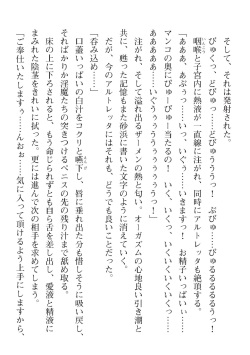 そして、それは発射された。
「びゅくっ、どびゅうううっ! ぶびゅっ、びゅるるるるるうっ!
咽喉と子宮内に熱液が一直線に注がれ、同時にアルトレッタも絶頂する。
「あああ、あぶぅっ……いっ、いぐぅ……いっ、いきますっ! お精子いっぱいぃ……
マンコの奥にびゅーびゅーうたれるのっ! いく、いくっ、いくいくいくいくっ……
あああああ――いくぅぅぅぅぅぅぅううっ!」
注がれ、そして溢れ出るザーメンの熱と匂い。オーガズムの心地良い引き潮と
共に、甦った記憶もまた砂浜に書いた文字のように消えていく。
だが、今のアルトレッタにはそれすらも、どうでも良いことだった。
「呑み込め……」
口蓋いっぱいの白汁をコクリと嚥下し、唇に垂れ出た分も惜しそうに舐め取る。
そればかりか淫魔たちの突きつけるペニスの先の残り汁まで舐め取る。
床の上に下ろされると、もう命じられずとも自ら舌を差し出し、愛液と精液に
まみれた陰茎をきれいに拭った。更には進んで次の相手を求めてしまう。
「ご奉仕いたしますぅ……んおぉ……気に入って頂けるよう上手にしますから、